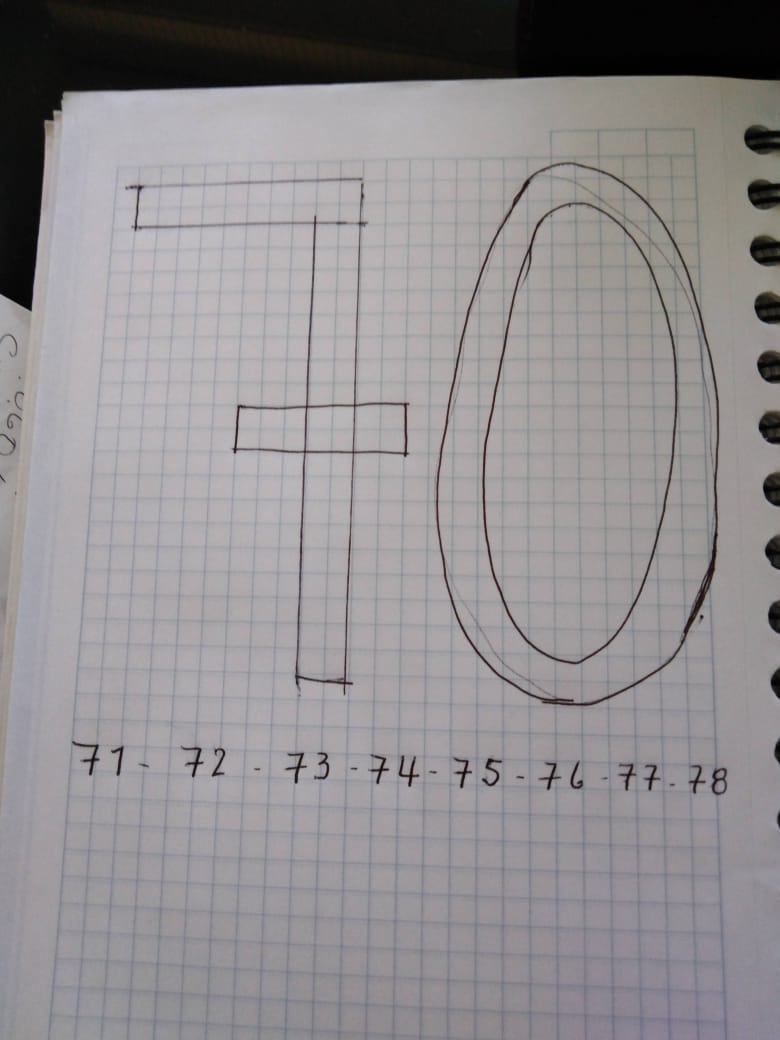 70
71 - 72 - 73 - 74 - 75 - 76 - 77 - 78